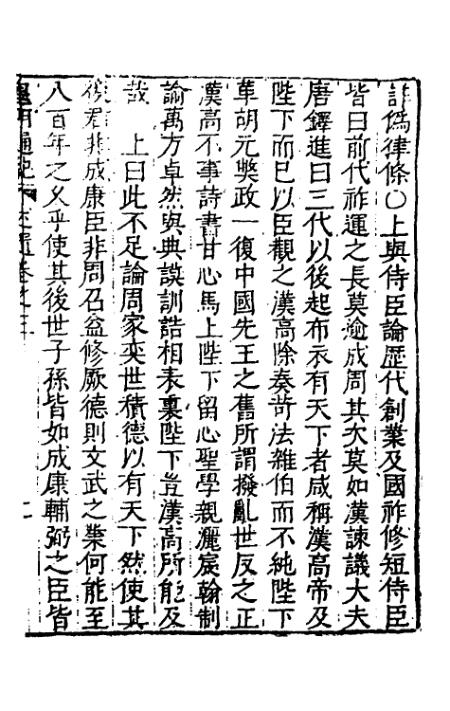 詐偽律條〇上與侍臣論歷代創業及國祚修短侍臣
皆曰前代祚運之長莫逾成周其次莫如漢諫議大夫
唐鐸進曰三代以後起布衣有天下者咸稱漢高帝及
陛下而已以臣觀之漢高除秦苛法雜伯而不純陛下
革胡元獘政一復中國先王之舊所謂撥亂世反之正
漢高不事詩書甘心馬上陛下留心聖學親灑宸翰制
諭萬方卓然與典謨訓誥相表裏陛下豈漢高所能及
哉　上曰此不足論周家奕世積德以有天下然使其
後君非成康臣非周召益修厥德則文武之業何能至
八百年之久乎使其後世子孫皆如成康輔弼之臣皆